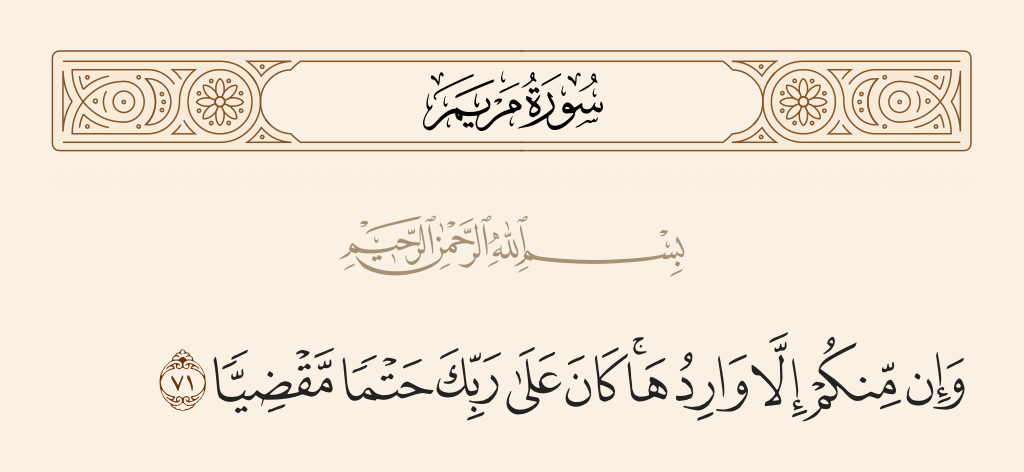 سُورَةُ مَرْيَمَ
بِسْمِ ٱللَّهِ ٱلرَّحْمَٰنِ ٱلرَّحِيمِ
وَإِن مِّنكُمْ إِلَّا وَارِدُهَا ۚ كَانَ عَلَىٰ رَبِّكَ حَتْمًا مَّقْضِيًّا ٧١